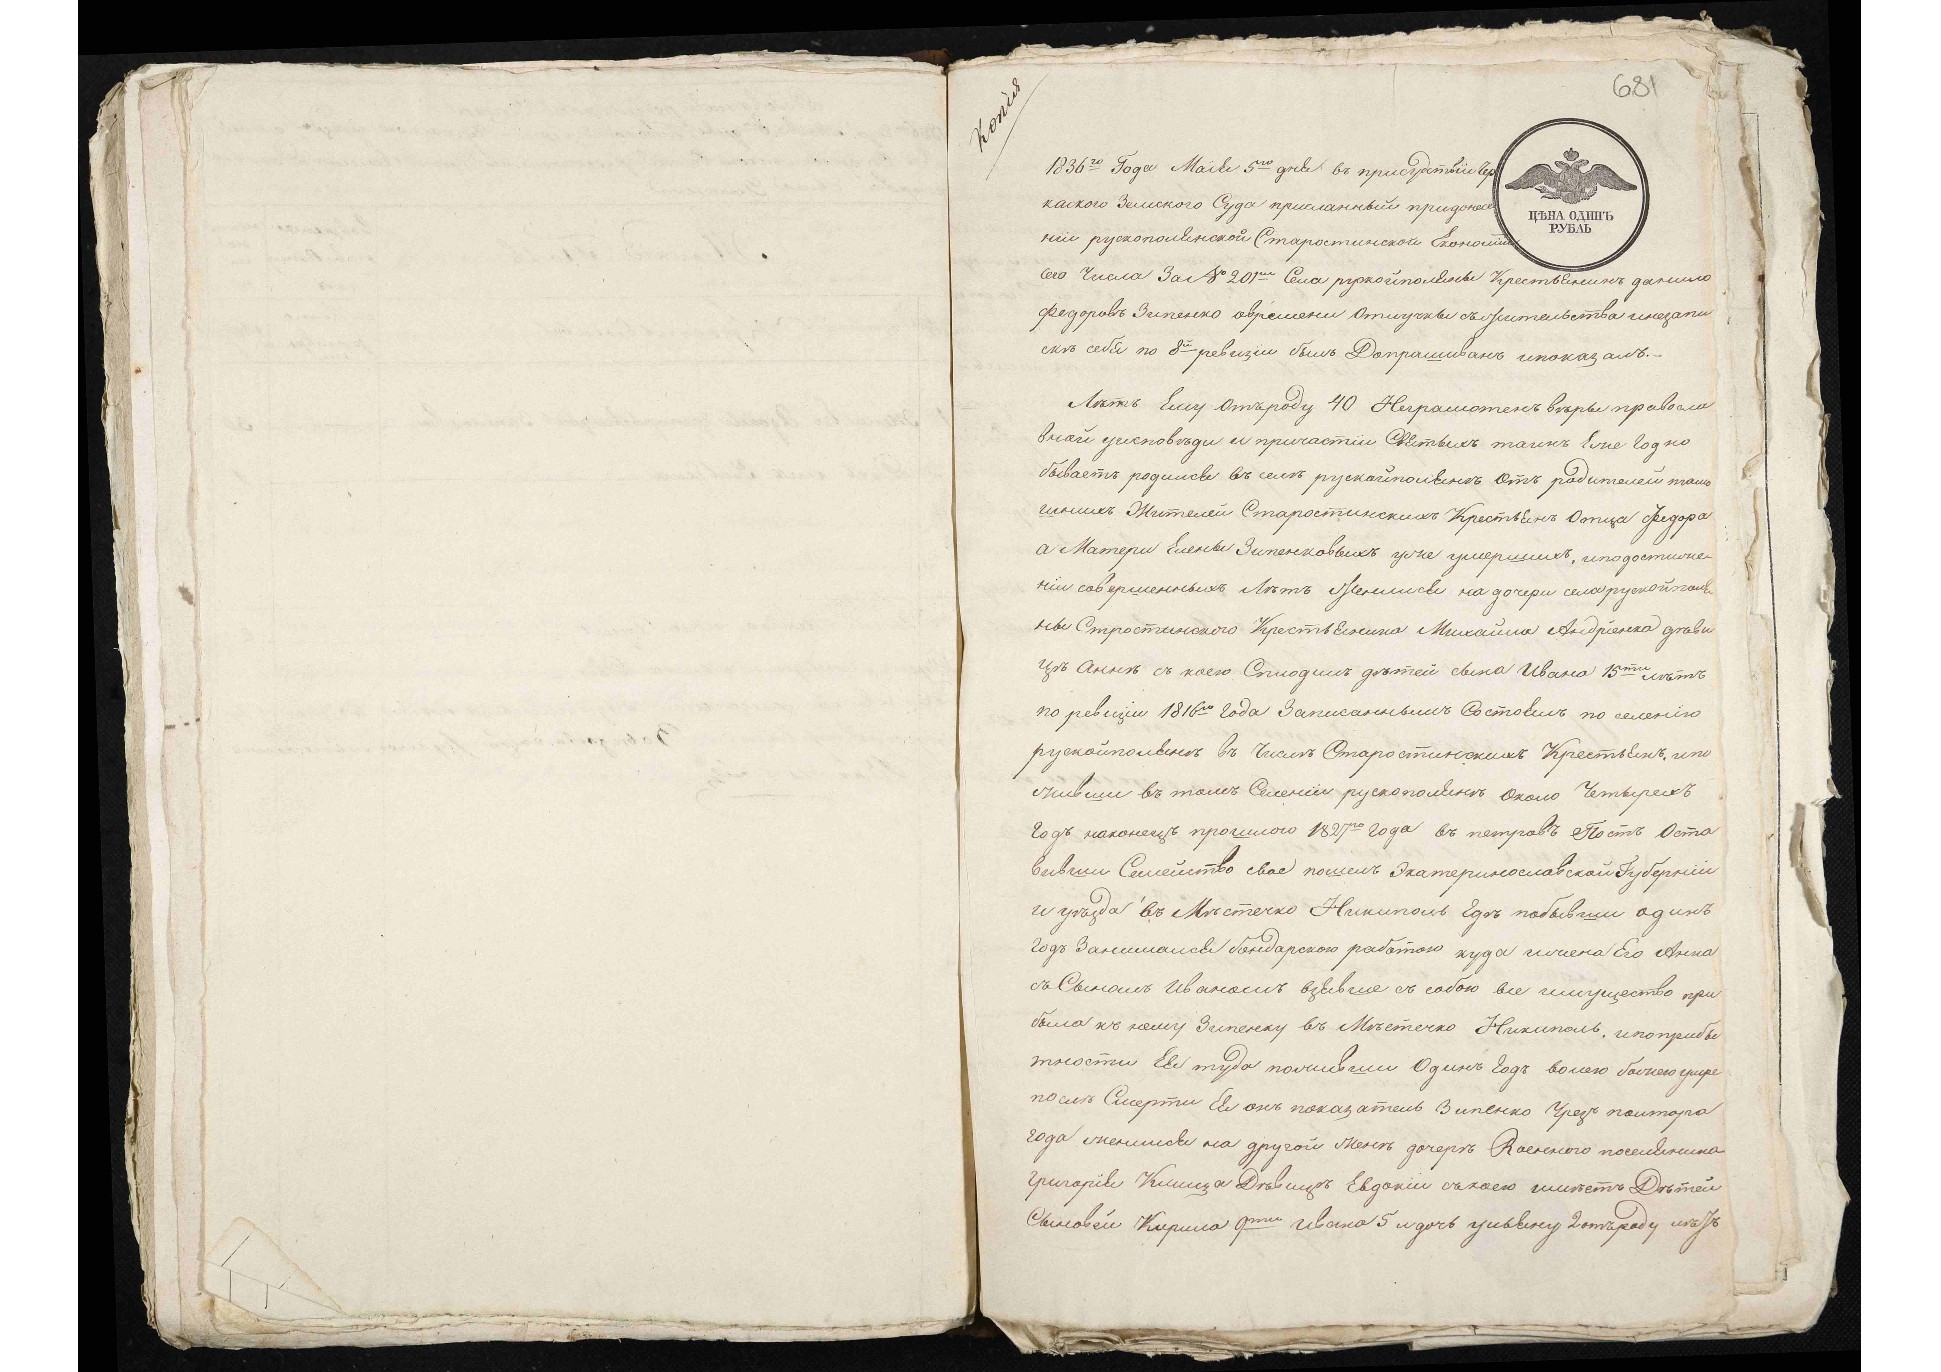 681
Копія
ЦѢНА ОДИНЪ
РУБЛЬ
1836го Года Маія 5го дня въ присудствіи Чер
каского Земского Суда присланный придонесе
ніи рускополянской Старостинской Економіи
сего Числа За № 201м Села рускойполяны Крестьянинъ данило
Федоровъ Зипенко овремени Отлучки съжительства инезапи
скѣ себя по 8й ревизіи былъ Допрашиванъ ипоказалъ.
Лѣтъ Ему Отъроду 40 Неграмотенъ вѣры правосла
вной уисповѣди и причастіи Святыхъ таинъ Ежегодно
бываетъ родился въ селѣ рускойполянѣ Отъ родителей тамо
шнихъ Жителей Старостинскихъ Крестьянъ Отца Федора
а Матери Елены Зипенковыхъ уже умершихъ, иподостиже
ніи совершенныхъ Лѣтъ Женился на дочери села рускойполя
ны Стростинского Крестьянина Михайла Андріенка дѣви
цѣ Аннѣ съ коею Сплодилъ дѣтей сына Ивана 15ти лѣтъ
по ревизіи 1816го Года Записаннымъ Состоялъ по селенію
рускойполянѣ въ Числѣ Старостинскихъ Крестьянъ, ипо
живши въ томъ Селеніи рускополянѣ Около Четырехъ
Годъ наконецъ прошлого 1827го Года въ петровъ Постъ Оста
вивши Семейство свое пошелъ Экатеринославской Губерніи
и уѣзда въ Мѣстечко Никиполь Гдѣ побывши одинъ
Годъ Занимался бондарскою работою куда ижена Его Анна
съ Сыномъ Иваномъ взявше съ собою все имущество при
была къ нему Зипенку въ Мѣстечко Никиполь, ипоприбы
тности Ея туда поживши Одинъ Годъ волею божею умре
послѣ Смерти Ея онъ показатель Зипенко Чрезъ полтора
года женился на другой женѣ дочерѣ Военного поселянина
Григорія Дѣвицѣ Евдокіи съкоею имѣетъ Дѣтей
Сыновей Кирила 9ти Ивана 5 и дочь 2 отъроду лѣтъ